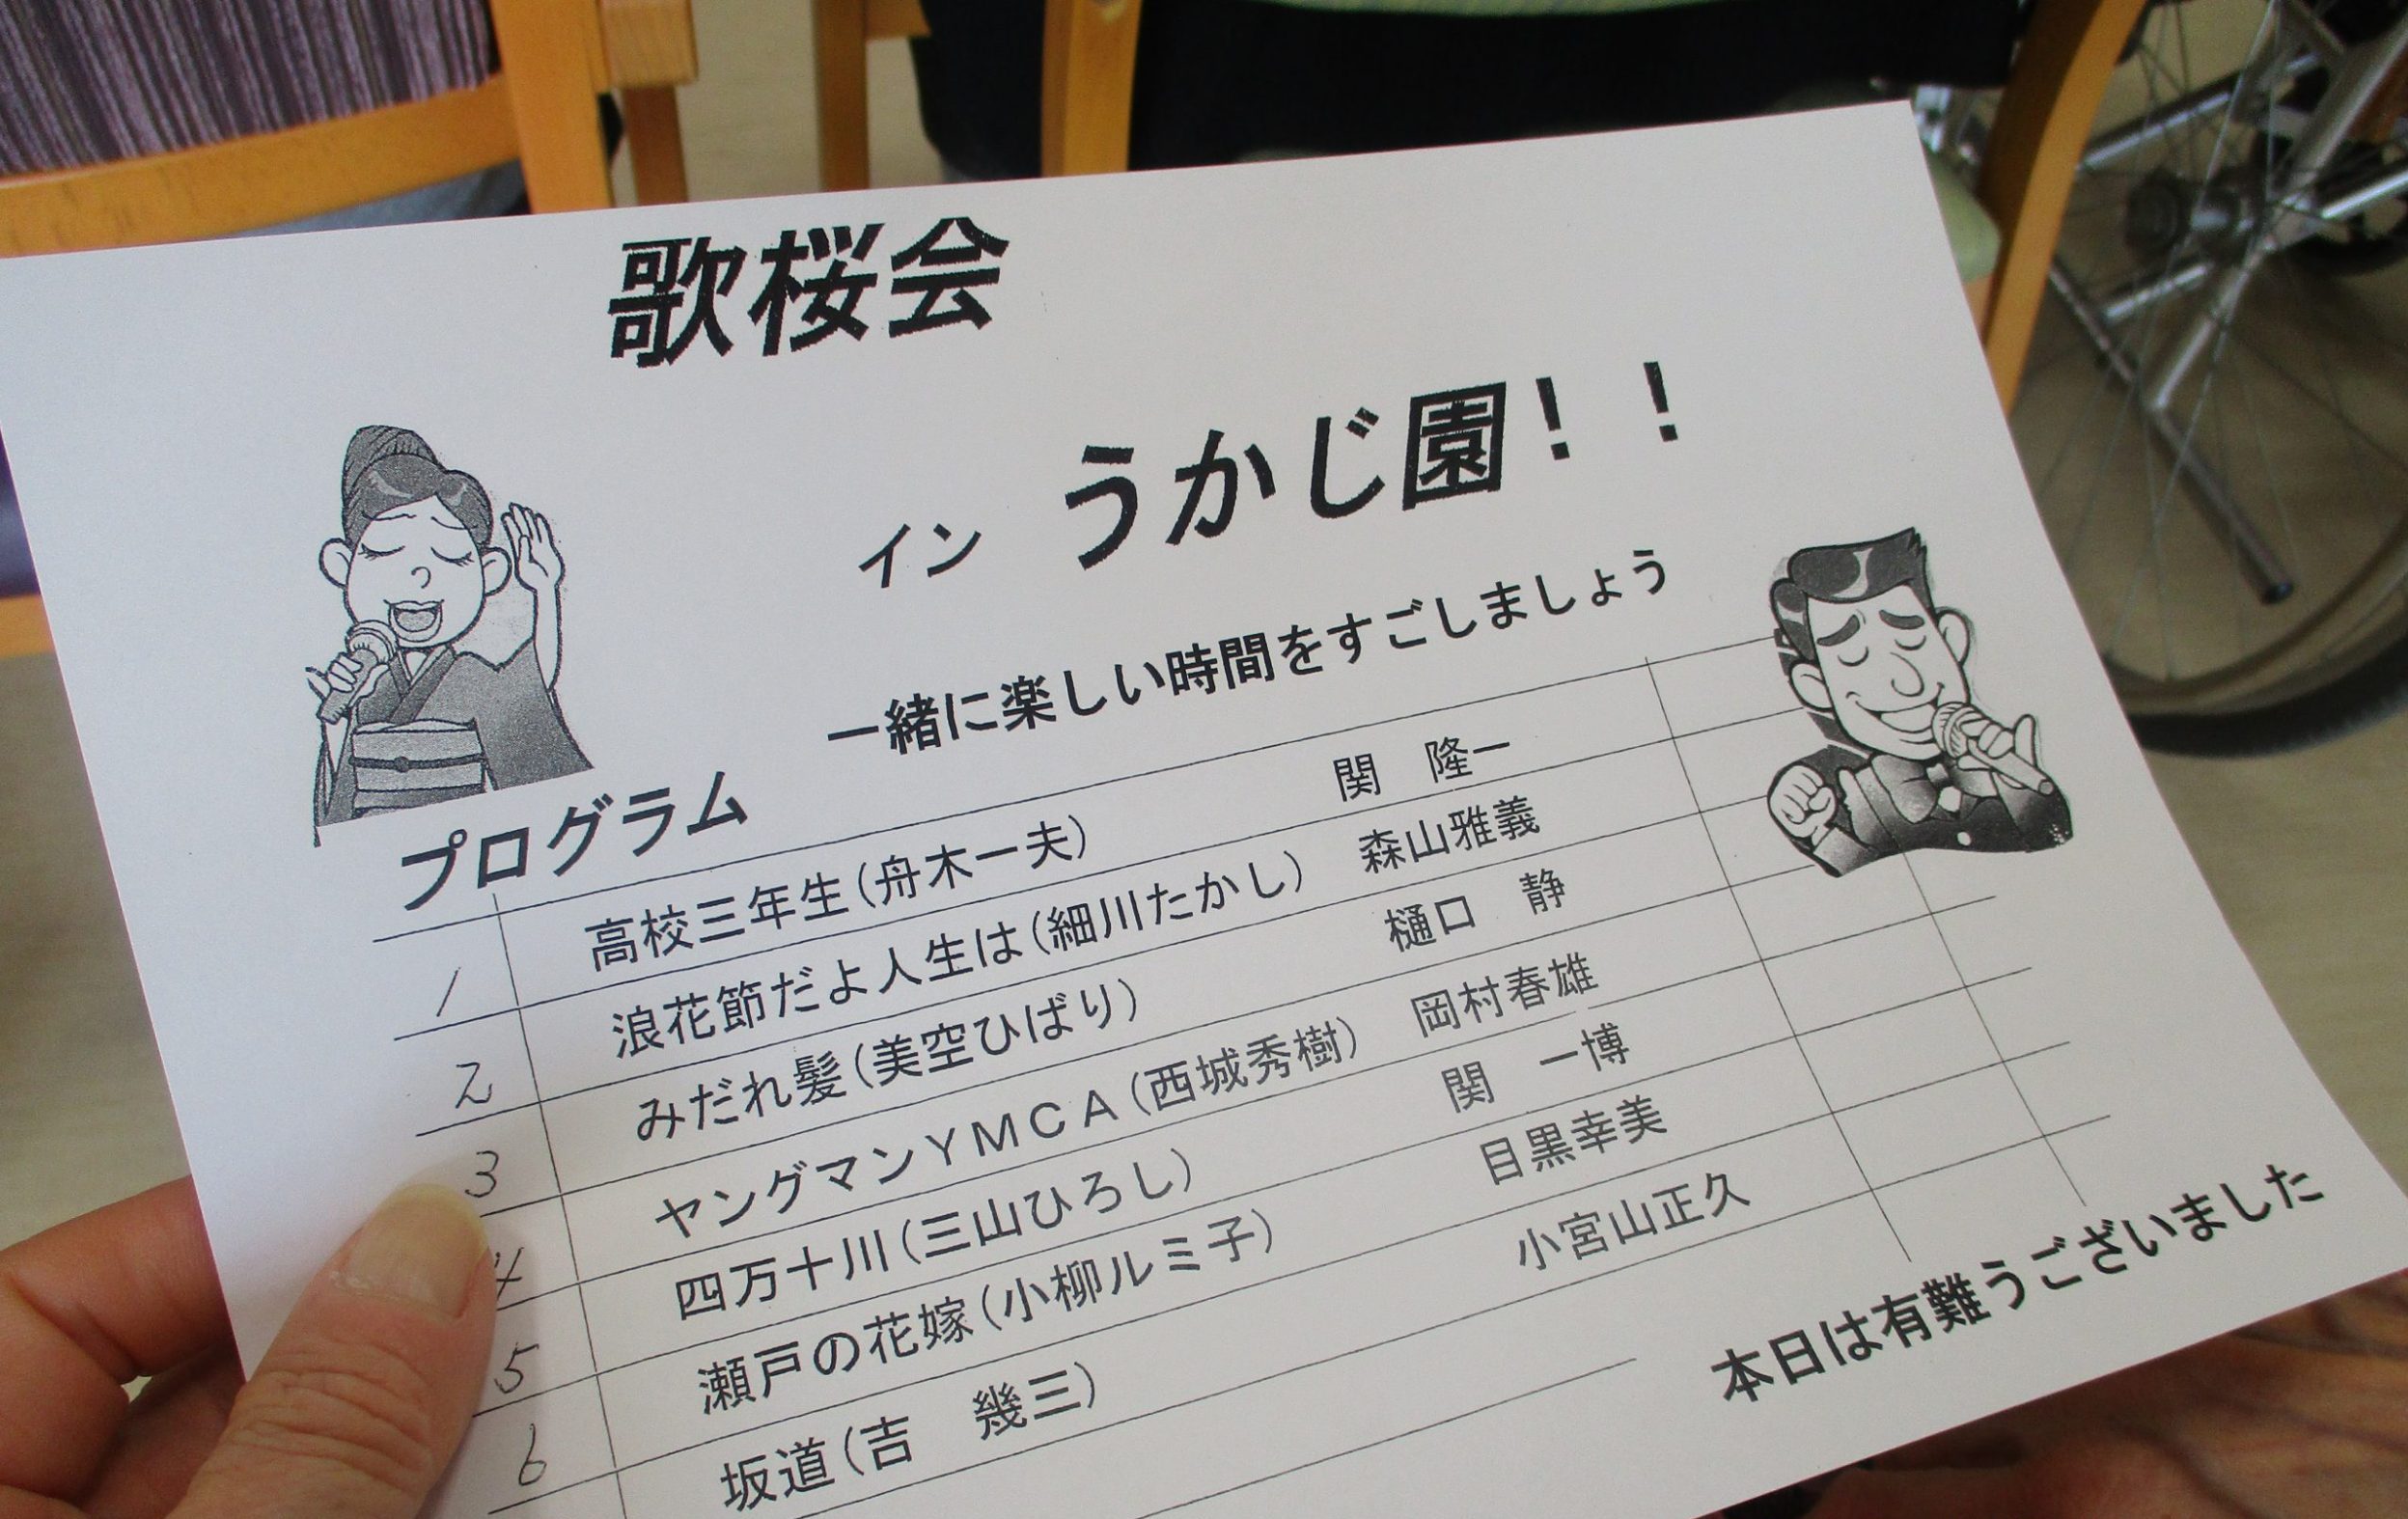 歌桜会
イン うかじ園！！
一緒に楽しい時間をすごしましょう
プログラム
1 高校三年生(舟木一夫) 関 隆一
2 浪花節だよ人生は(細川たかし) 森山雅義
3 みだれ髪(美空ひばり) 樋口 静
4 ヤングマンYMCA(西城秀樹) 岡村春雄
5 四万十川(三山ひろし) 関 一博
6 瀬戸の花嫁(小柳ルミ子) 目黒幸美
坂道(吉 幾三) 小宮山正久
本日は有難うございました